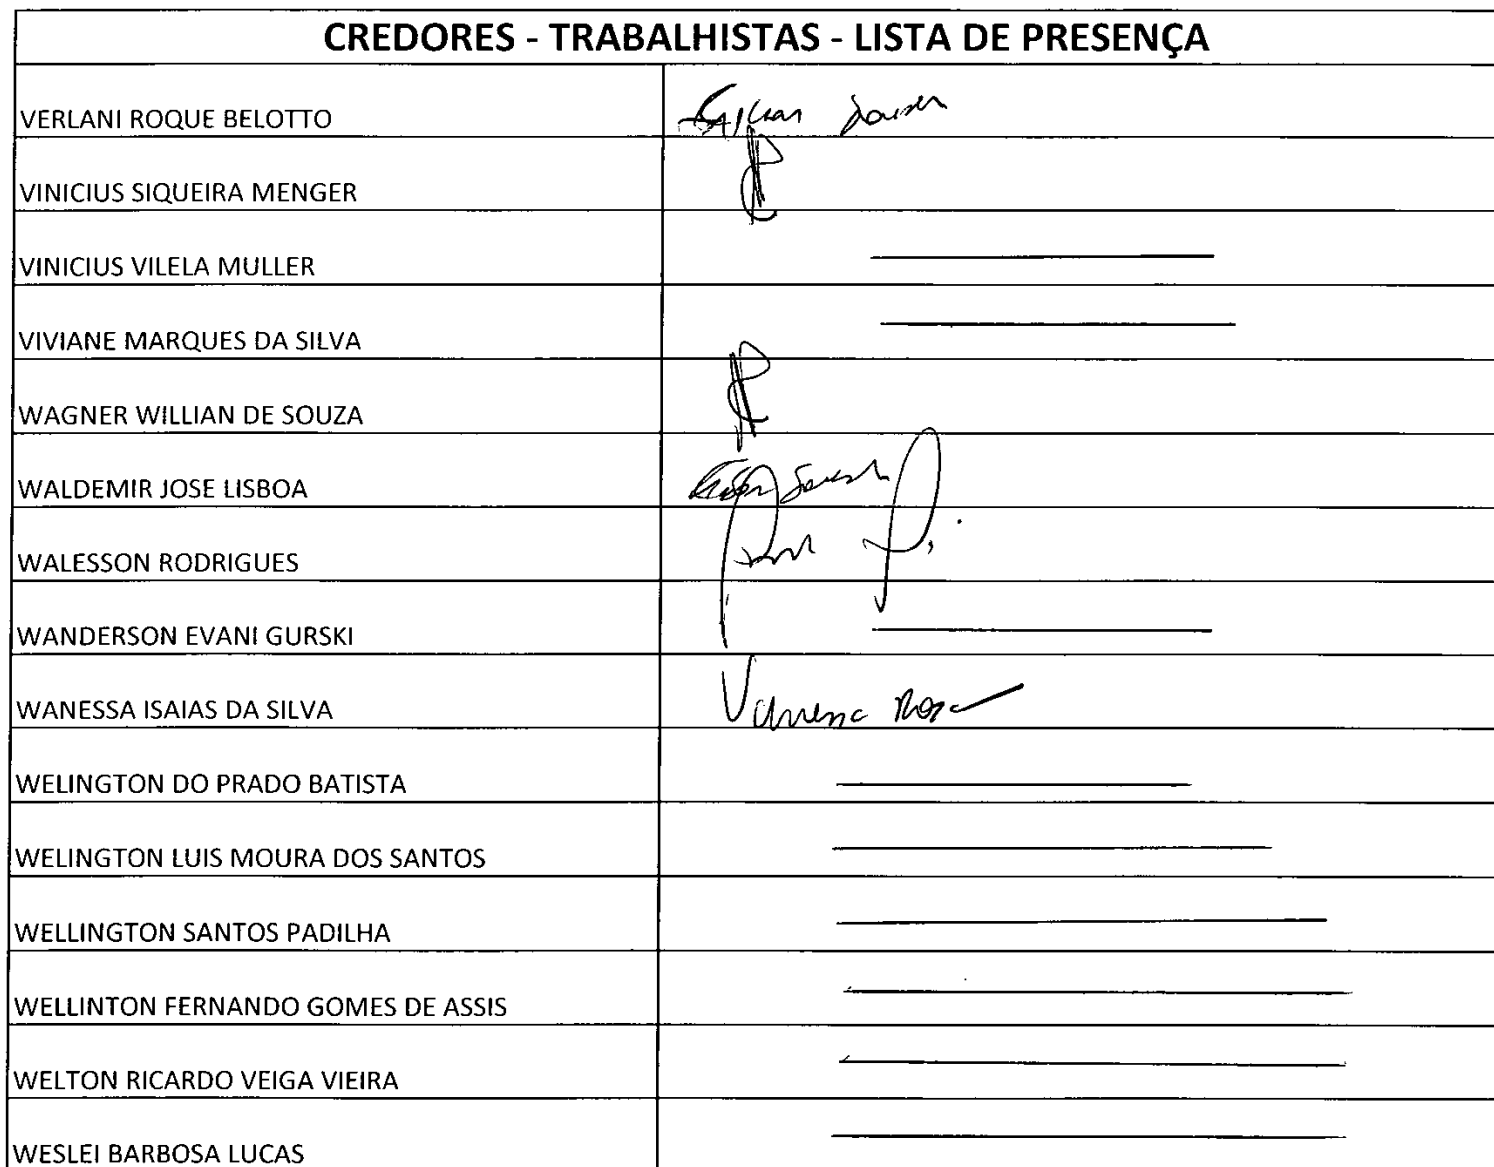 CREDORES - TRABALHISTAS - LISTA DE PRESENÇA
VERLANI ROQUE BELOTTO
VINICIUS SIQUEIRA MENGER
VINICIUS VILELA MULLER
VIVIANE MARQUES DA SILVA
WAGNER WILLIAN DE SOUZA
WALDEMIR JOSE LISBOA
WALESSON RODRIGUES
WANDERSON EVANI GURSKI
WANESSA ISAIAS DA SILVA Vanessa
WELINGTON DO PRADO BATISTA
WELINGTON LUIS MOURA DOS SANTOS
WELLINGTON SANTOS PADILHA
WELLINTON FERNANDO GOMES DE ASSIS
WELTON RICARDO VEIGA VIEIRA
WESLEI BARBOSA LUCAS